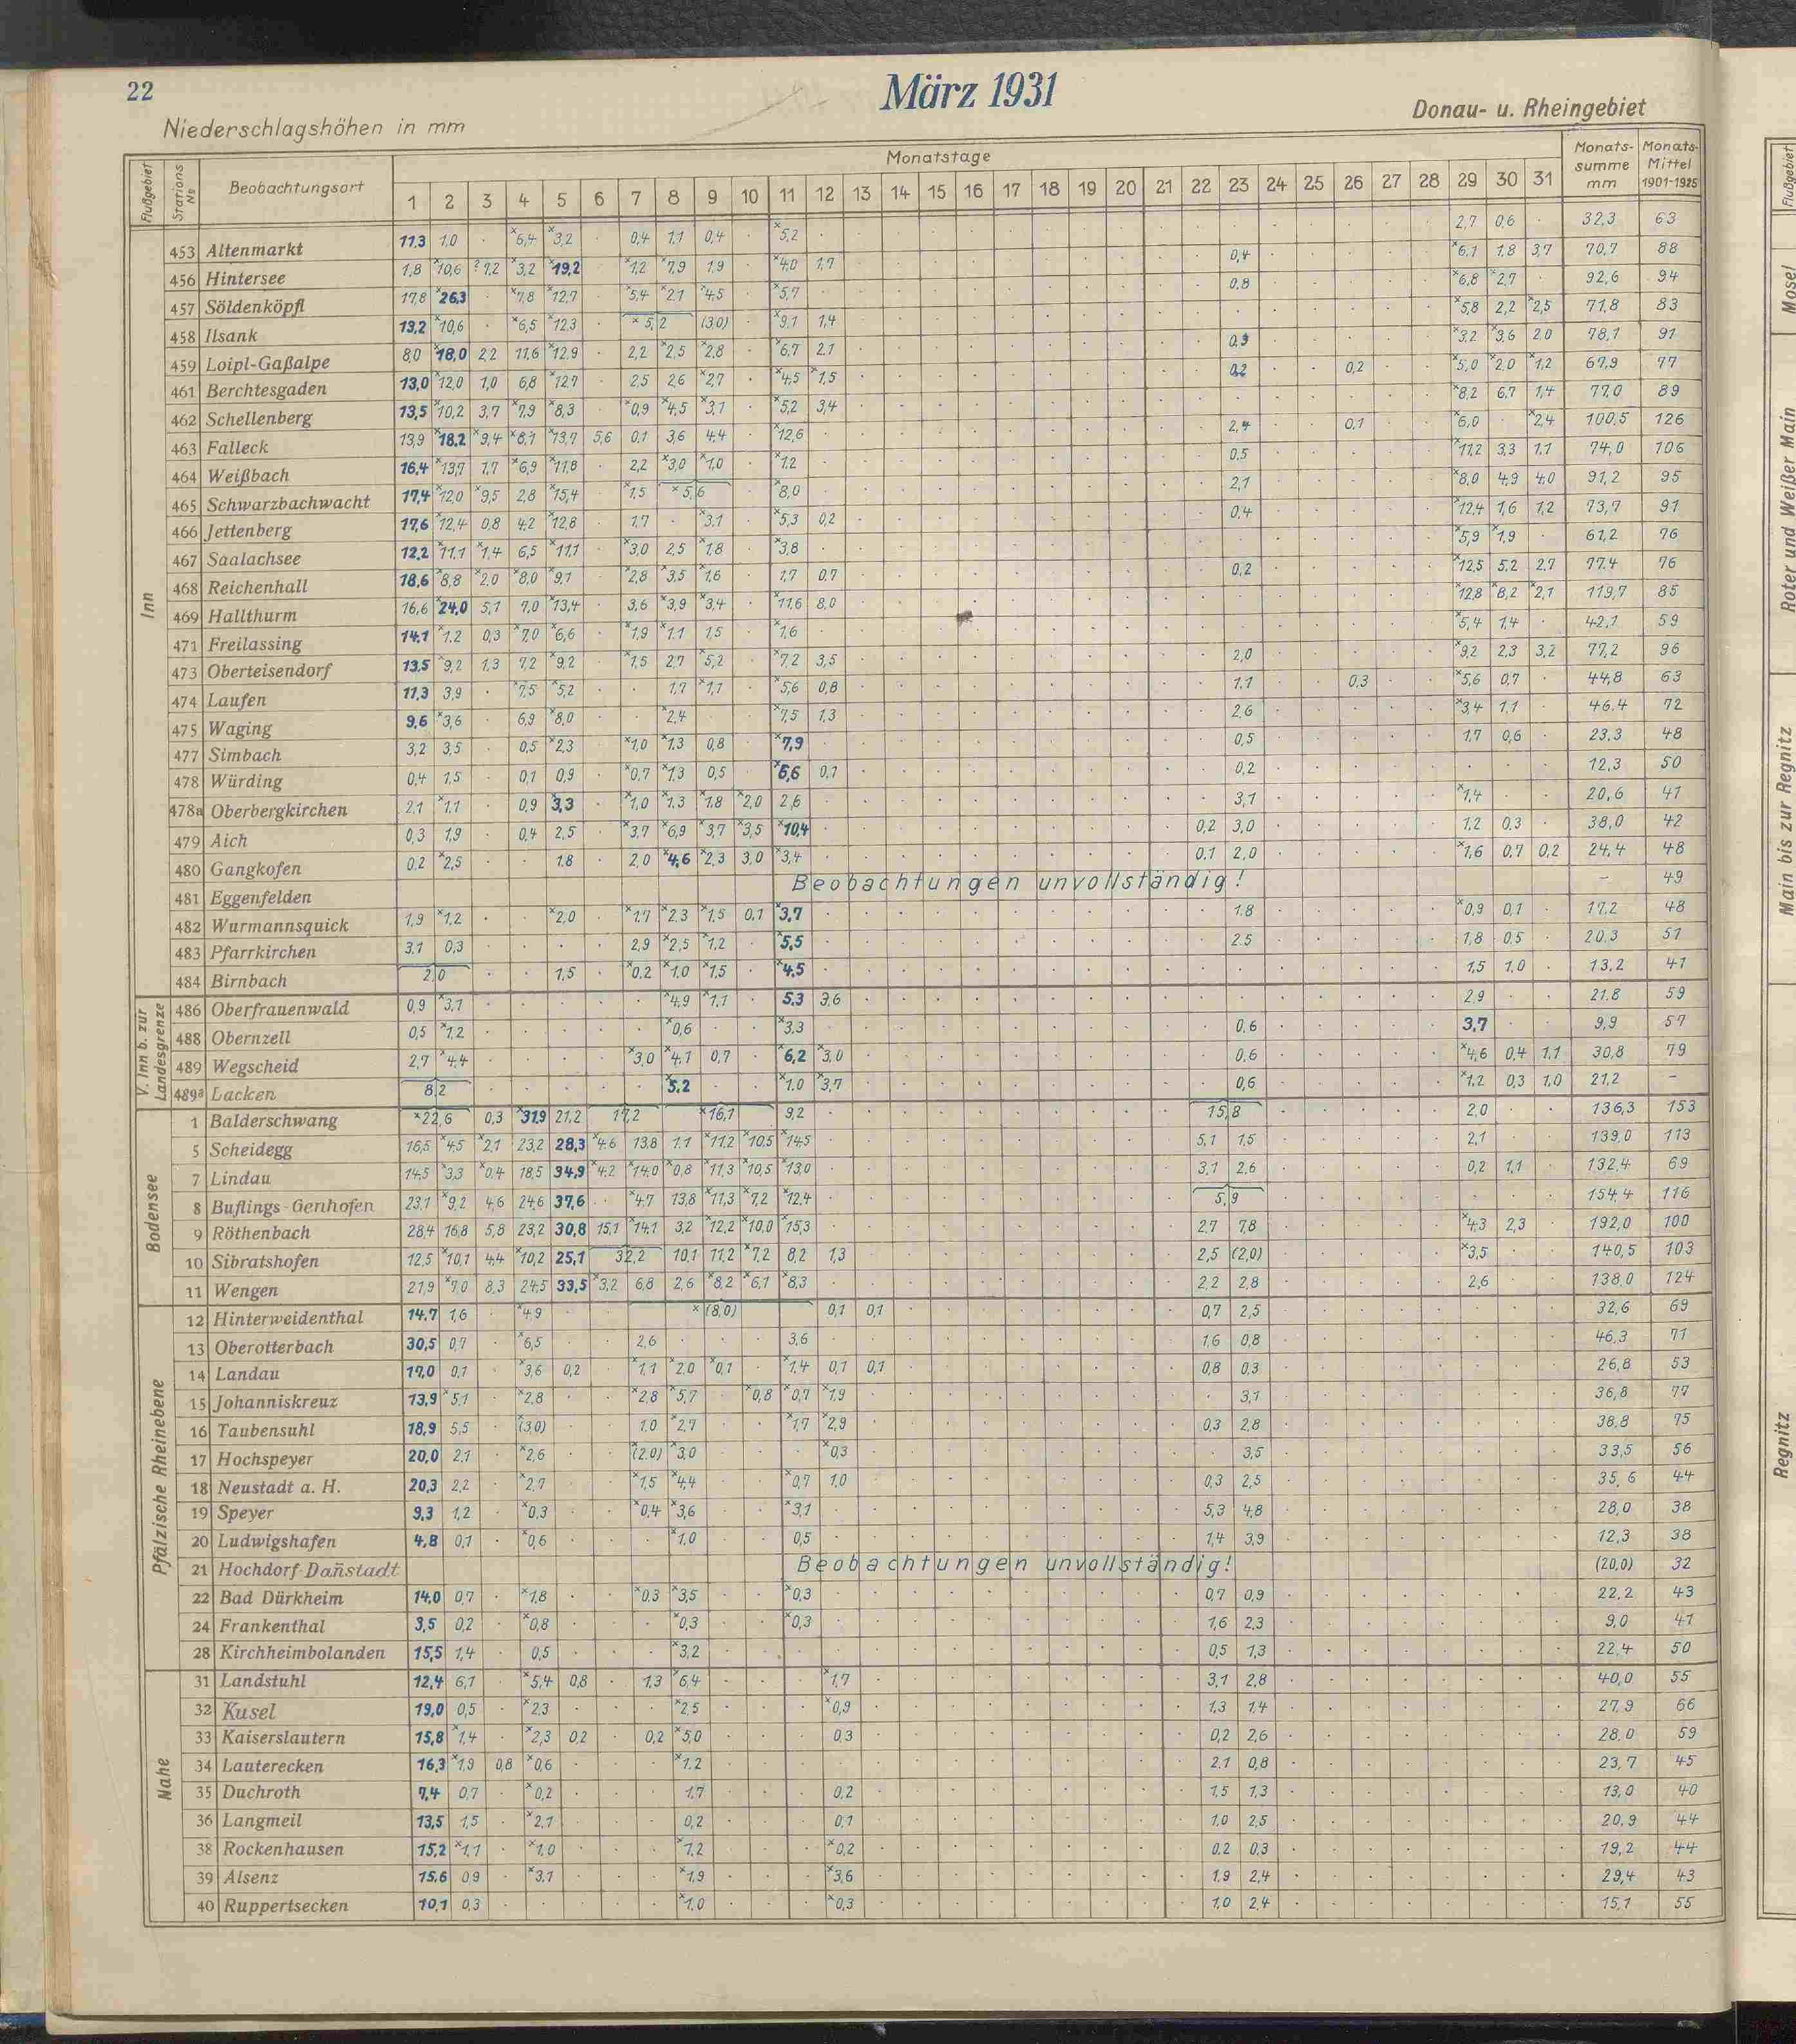 22
März 1931
Donau- u. Rheingebiet
Niederschlagshöhen in mm
Flußgebiet Stations № Beobachtungsort Monatstage Monats-summe mm Monats-Mittel 1901-1925
1 2 3 4 5 6 7 8 9 10 11 12 13 14 15 16 17 18 19 20 21 22 23 24 25 26 27 28 29 30 31
Inn
453 Altenmarkt 11,3 1,0 · ×6,4 ×3,2 · 0,4 1,1 0,4 · ×5,2 2,7 0,6 · 32,3 63
456 Hintersee 1,8 ×10,6 ?7,2 ×3,2 ×19,2 ×1,2 ×7,9 1,9 ×4,0 1,7 0,4 ×6,1 1,8 3,7 70,7 88
457 Söldenköpfl 17,8 ×26,3 · ×7,8 ×12,7 · ×5,4 ×2,1 ×4,5 · ×5,7 0,8 ×6,8 ×2,7 · 92,6 94
458 Ilsank 13,2 ×10,6 · ×6,5 ×12,3 · ×5,2 (3,0) ×9,1 1,4 ×5,8 2,2 ×2,5 71,8 83
459 Loipl-Gaßalpe 8,0 ×18,0 2,2 11,6 ×12,9 · 2,2 ×2,5 ×2,8 · ×6,7 2,1 0,3 ×3,2 ×3,6 2,0 78,1 91
461 Berchtesgaden 13,0 ×12,0 1,0 6,8 ×12,7 · 2,5 2,6 ×2,7 · ×4,5 ×1,5 0,2 0,2 ×5,0 ×2,0 ×1,2 67,9 77
462 Schellenberg 13,5 ×10,2 3,7 ×7,9 ×8,3 · ×0,9 ×4,5 ×3,1 · ×5,2 3,4 ×8,2 6,7 1,4 77,0 89
463 Falleck 13,9 ×18,2 ×9,4 ×8,1 ×13,7 5,6 0,1 3,6 4,4 ×12,6 2,4 0,1 ×6,0 · ×2,4 100,5 126
464 Weißbach 16,4 ×13,7 1,7 ×6,9 ×11,8 · 2,2 ×3,0 ×1,0 · ×1,2 0,5 ×11,2 3,3 1,1 74,0 106
465 Schwarzbachwacht 17,4 ×12,0 ×9,5 2,8 ×15,4 · ×1,5 ×5,6 ×8,0 2,1 ×8,0 4,9 4,0 91,2 95
466 Jettenberg 17,6 ×12,4 0,8 4,2 ×12,8 · 1,7 · ×3,1 · ×5,3 0,2 0,4 ×12,4 1,6 1,2 73,7 91
467 Saalachsee 12,2 ×11,1 ×1,4 6,5 ×11,1 · ×3,0 2,5 ×1,8 · ×3,8 ×5,9 ×1,9 · 61,2 76
468 Reichenhall 18,6 ×8,8 ×2,0 ×8,0 ×9,1 · ×2,8 ×3,5 ×1,6 · 1,7 0,7 0,2 ×12,5 5,2 2,7 77,4 76
469 Hallthurm 16,6 ×24,0 5,1 7,0 ×13,4 · 3,6 ×3,9 ×3,4 · ×11,6 8,0 ×12,8 ×8,2 ×2,1 119,7 85
471 Freilassing 14,1 ×1,2 0,3 ×7,0 ×6,6 · ×1,9 ×1,1 1,5 · ×1,6 ×5,4 1,4 · 42,1 59
473 Oberteisendorf 13,5 ×9,2 1,3 7,2 ×9,2 · ×1,5 2,7 ×5,2 · ×7,2 3,5 2,0 ×9,2 2,3 3,2 77,2 96
474 Laufen 11,3 3,9 · ×7,5 ×5,2 · · 1,7 ×1,1 · ×5,6 0,8 1,1 0,3 ×5,6 0,7 · 44,8 63
475 Waging 9,6 ×3,6 · 6,9 ×8,0 · · ×2,4 · · ×7,5 1,3 2,6 ×3,4 1,1 · 46,4 72
477 Simbach 3,2 3,5 · 0,5 ×2,3 · ×1,0 ×1,3 0,8 · ×7,9 0,5 1,7 0,6 · 23,3 48
478 Würding 0,4 1,5 · 0,1 0,9 · ×0,7 ×1,3 0,5 · ×6,6 0,1 0,2 · · · 12,3 50
478a Oberbergkirchen 2,1 ×1,1 · 0,9 ×3,3 · ×1,0 ×1,3 ×1,8 ×2,0 2,6 3,1 ×1,4 · · 20,6 41
479 Aich 0,3 1,9 · 0,4 2,5 · ×3,7 ×6,9 ×3,7 ×3,5 ×10,4 0,2 3,0 1,2 0,3 · 38,0 42
480 Gangkofen 0,2 ×2,5 · · 1,8 · 2,0 ×4,6 ×2,3 3,0 ×3,4 0,1 2,0 ×1,6 0,7 0,2 24,4 48
481 Eggenfelden Beobachtungen unvollständig! – 49
482 Wurmannsquick 1,9 ×1,2 · · ×2,0 · ×1,7 ×2,3 ×1,5 0,1 ×3,7 1,8 ×0,9 0,1 · 17,2 48
483 Pfarrkirchen 3,1 0,3 · · · · 2,9 ×2,5 ×1,2 · ×5,5 2,5 1,8 0,5 · 20,3 51
484 Birnbach 2,0 · · 1,5 · ×0,2 ×1,0 ×1,5 · ×4,5 1,5 1,0 · 13,2 41
V. Inn b. zur Landesgrenze
486 Oberfrauenwald 0,9 ×3,1 ×4,9 ×1,1 · 5,3 3,6 2,9 · · 21,8 59
488 Obernzell 0,5 ×1,2 ×0,6 · · ×3,3 0,6 3,7 · · 9,9 57
489 Wegscheid 2,7 ×4,4 ×3,0 ×4,1 0,7 · ×6,2 ×3,0 0,6 ×4,6 0,4 1,1 30,8 79
489ª Lacken 8,2 ×5,2 · · ×1,0 ×3,7 0,6 ×1,2 0,3 1,0 21,2 –
Bodensee
1 Balderschwang ×22,6 0,3 ×31,9 21,2 17,2 ×16,1 9,2 15,8 2,0 · · 136,3 153
5 Scheidegg 16,5 ×4,5 ×2,1 23,2 28,3 ×4,6 13,8 1,1 ×11,2 ×10,5 ×14,5 5,1 1,5 2,1 · 139,0 113
7 Lindau 14,5 ×3,3 ×0,4 18,5 34,9 ×4,2 ×14,0 ×0,8 ×11,3 ×10,5 ×13,0 3,1 2,6 0,2 1,1 · 132,4 69
8 Buflings-Genhofen 23,1 ×9,2 4,6 24,6 37,6 · ×4,7 13,8 ×11,3 ×7,2 ×12,4 5,9 · · · 154,4 116
9 Röthenbach 28,4 16,8 5,8 23,2 30,8 15,1 ×14,1 3,2 ×12,2 ×10,0 ×15,3 2,7 7,8 ×4,3 2,3 · 192,0 100
10 Sibratshofen 12,5 ×10,1 4,4 ×10,2 25,1 32,2 10,1 11,2 ×7,2 8,2 1,3 2,5 (2,0) ×3,5 · · 140,5 103
11 Wengen 21,9 ×7,0 8,3 24,5 33,5 ×3,2 6,8 2,6 ×8,2 ×6,1 ×8,3 2,2 2,8 2,6 · · 138,0 124
Pfälzische Rheinebene
12 Hinterweidenthal 14,7 1,6 · ×4,9 ×(8,0) 0,1 0,1 0,7 2,5 32,6 69
13 Oberotterbach 30,5 0,7 · ×6,5 · · 2,6 · · · 3,6 1,6 0,8 46,3 71
14 Landau 17,0 0,1 · ×3,6 0,2 · ×1,1 ×2,0 ×0,1 · ×1,4 0,1 0,1 0,8 0,3 26,8 53
15 Johanniskreuz 13,9 ×5,1 · ×2,8 · · ×2,8 ×5,7 · ×0,8 ×0,7 ×1,9 3,1 36,8 77
16 Taubensuhl 18,9 5,5 · ×(3,0) · · 1,0 ×2,7 · · ×1,7 ×2,9 0,3 2,8 38,8 75
17 Hochspeyer 20,0 2,1 · ×2,6 · · ×(2,0) ×3,0 · · · ×0,3 3,5 33,5 56
18 Neustadt a. H. 20,3 2,2 · ×2,7 · · ×1,5 ×4,4 · · ×0,7 1,0 0,3 2,5 35,6 44
19 Speyer 9,3 1,2 · ×0,3 · · ×0,4 ×3,6 · · ×3,1 5,3 4,8 28,0 38
20 Ludwigshafen 4,8 0,1 · ×0,6 · · · ×1,0 · · 0,5 1,4 3,9 12,3 38
21 Hochdorf-Dan̄stadt Beobachtungen unvollständig! (20,0) 32
22 Bad Dürkheim 14,0 0,7 · ×1,8 · · ×0,3 ×3,5 · · ×0,3 0,7 0,9 22,2 43
24 Frankenthal 3,5 0,2 · ×0,8 · · · ×0,3 · · ×0,3 1,6 2,3 9,0 41
28 Kirchheimbolanden 15,5 1,4 · 0,5 · · · ×3,2 0,5 1,3 22,4 50
Nahe
31 Landstuhl 12,4 6,1 · ×5,4 0,8 · 1,3 ×6,4 · · · ×1,7 3,1 2,8 40,0 55
32 Kusel 19,0 0,5 · ×2,3 · · · ×2,5 · · · ×0,9 1,3 1,4 27,9 66
33 Kaiserslautern 15,8 ×1,4 · ×2,3 0,2 · 0,2 ×5,0 · · · 0,3 0,2 2,6 28,0 59
34 Lauterecken 16,3 ×1,9 0,8 ×0,6 · · · ×1,2 2,1 0,8 23,7 45
35 Duchroth 7,4 0,7 · ×0,2 · · · 1,7 · · · 0,2 1,5 1,3 13,0 40
36 Langmeil 13,5 1,5 · ×2,1 · · · 0,2 · · · 0,1 1,0 2,5 20,9 44
38 Rockenhausen 15,2 ×1,1 · ×1,0 · · · ×1,2 · · · ×0,2 0,2 0,3 19,2 44
39 Alsenz 15,6 0,9 · ×3,1 · · · ×1,9 · · · ×3,6 1,9 2,4 29,4 43
40 Ruppertsecken 10,1 0,3 · · · · · ×1,0 · · · ×0,3 1,0 2,4 15,1 55
Flußgebiet
Mosel
Roter und Weißer Main
Main bis zur Regnitz
Regnitz